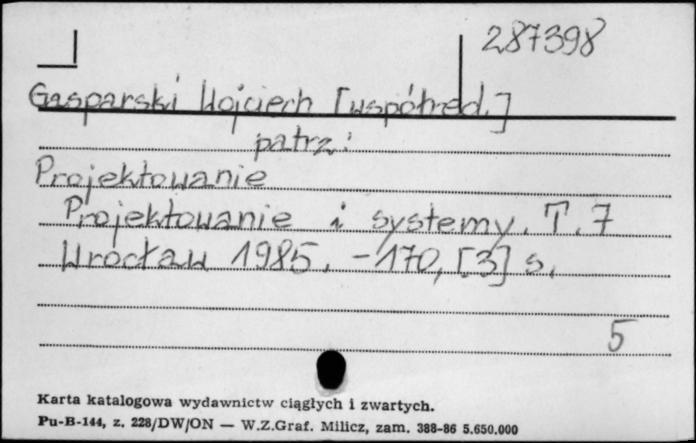 287398
Gasparski Wojciech [współred.]
patrz:
Projektowanie
Projektowanie i systemy. T. 7
Wrocław 1985. - 170, [3] s.
5
Karta katalogowa wydawnictw ciągłych i zwartych.
Pu-B-144, z. 228/DW/ON — W.Z.Graf. Milicz, zam. 388-86 5.650.000